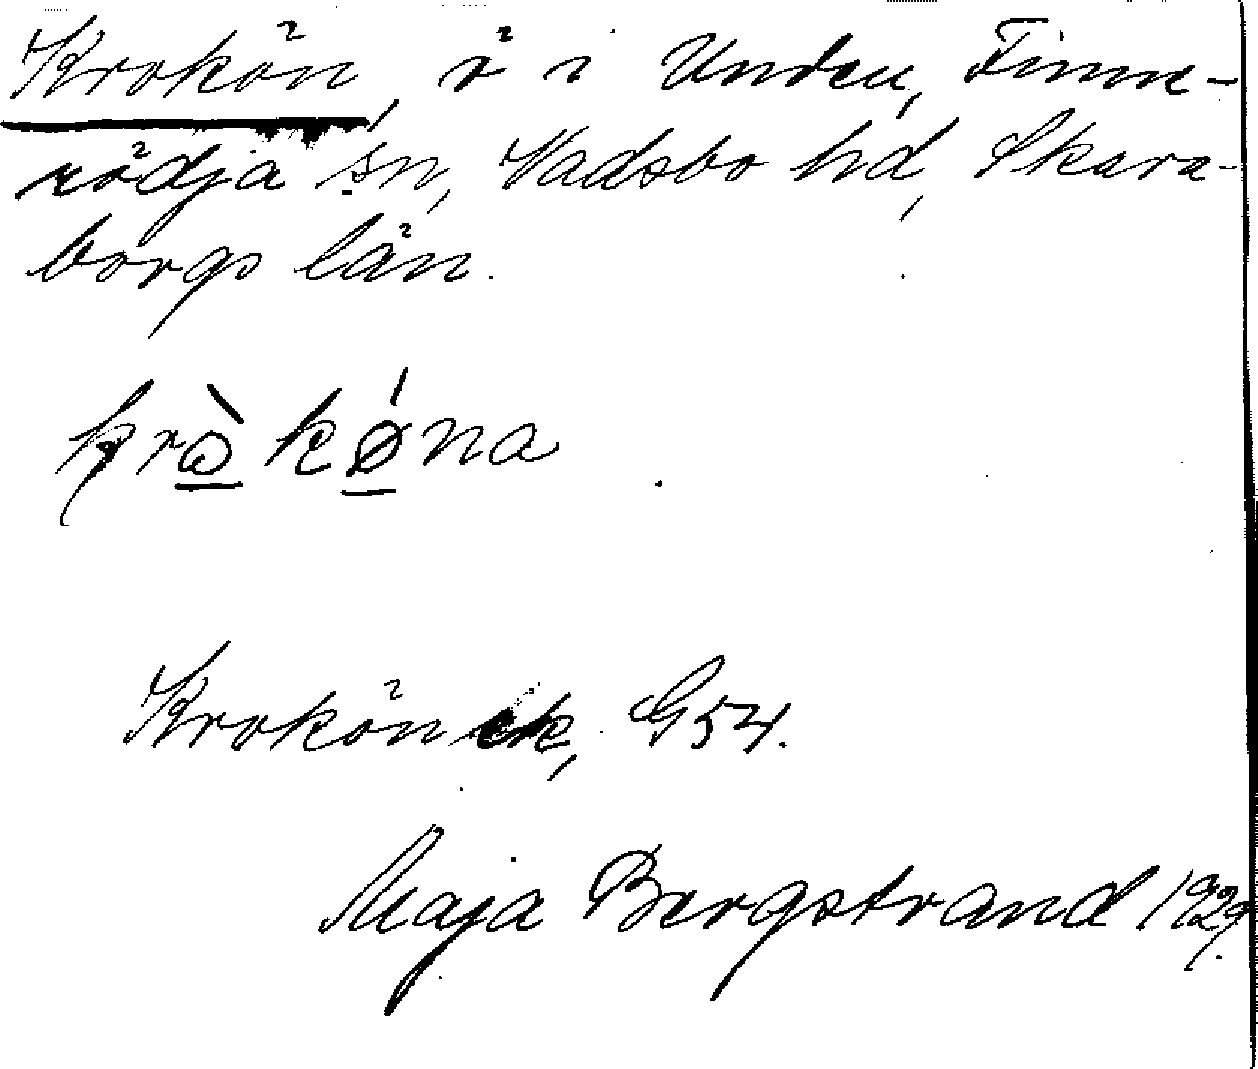 Krokön, ö i Unden, Finne-
rödja sn, Vadsbo hd, Skara-
borgs län.
kròkǿna
Krokön ek, G54.
Maja Bergstrand 1929.